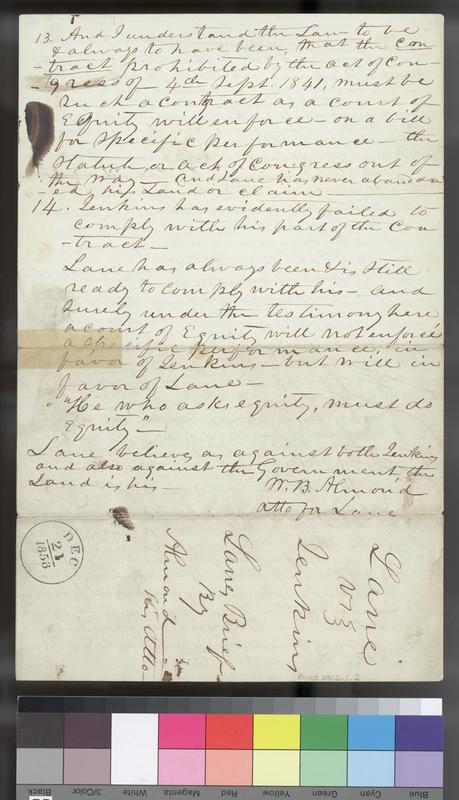 13. And I understand the Law to be
& always to have been, that the con
-tract prohibited by the act of Con-
-gress of 4th Sept. 1841, must be
such a contract as a court of
Equity will enforce - on a bill
for specific performance - the
Statute or act of Congress out of
the way - And Lane has never abandon
-ed his Land or claim -
14. Jenkins has evidently failed to
comply with his part of the Con
-tract -
Lane has always been & is still
ready to comply with his - and
surely under the testimony here
a court of Equity will not enforce
a specific performance, in
favor of Jenkins - but will in
favor of Lane -
" "He who asks equity, must do
Equity" -
Lane believes as against both Jenkins
and also against the Government the
Land is his -
W. B. Almond
atto for Lane
DEC
21
1858
Lane
vs
Jenkins
Lane Brief
By
Almond
his Atto
RH MS 28:2.1.2
Black
3/Color
White
Magenta
Red
Yellow
Green
Cyan
Blue